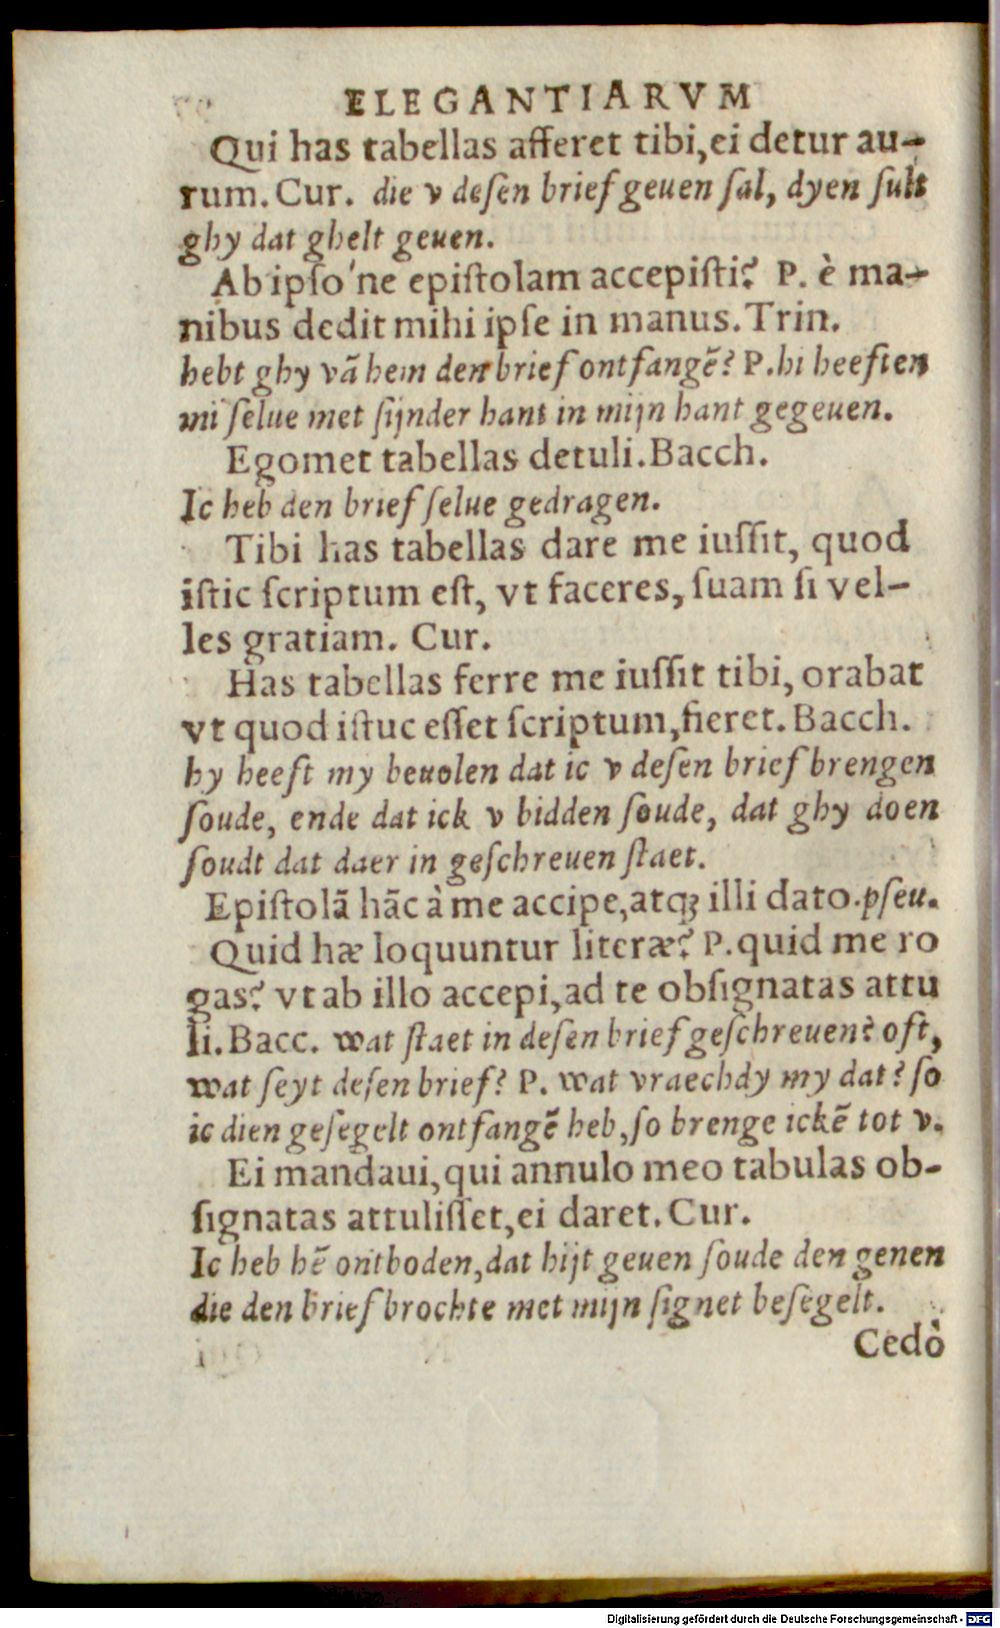 ELEGANTIARVM
Qui has tabellas afferet tibi, ei detur au-
rum. Cur. die v deſen brief geuen ſal, dyen ſult
ghy dat ghelt geuen.
Ab ipſo'ne epiſtolam accepiſti? P. è ma-
nibus dedit mihi ipſe in manus. Trin.
hebt ghy vā hem den brief ontfangē? P. hi heeften
mi ſelue met ſijnder hant in mijn hant gegeuen.
Egomet tabellas detuli. Bacch.
Ic heb den brief ſelue gedragen.
Tibi has tabellas dare me iuſſit, quod
iſtic ſcriptum eſt, vt faceres, ſuam ſi vel-
les gratiam. Cur.
Has tabellas ferre me iuſſit tibi, orabat
vt quod iſtuc eſſet ſcriptum, fieret. Bacch.
hy heeft my beuolen dat ic v deſen brief brengen
ſoude, ende dat ick v bidden ſoude, dat ghy doen
ſoudt dat daer in geſchreuen ſtaet.
Epiſtolā hāc à me accipe, atqꝫ illi dato. pſeu.
Quid hæ loquuntur literæ? P. quid me ro
gas? vt ab illo accepi, ad te obſignatas attu
li. Bacc. wat ſtaet in deſen brief geſchreuen? oft,
wat ſeyt deſen brief? P. wat vraechdy my dat? ſo
ic dien geſegelt ontfangē heb, ſo brenge ickē tot v.
Ei mandaui, qui annulo meo tabulas ob-
ſignatas attuliſſet, ei daret. Cur.
Ic heb hē ontboden, dat hijt geuen ſoude den genen
die den brief brochte met mijn ſignet beſegelt.
Cedò
Digitalisierung gefördert durch die Deutsche Forschungsgemeinschaft - DFG